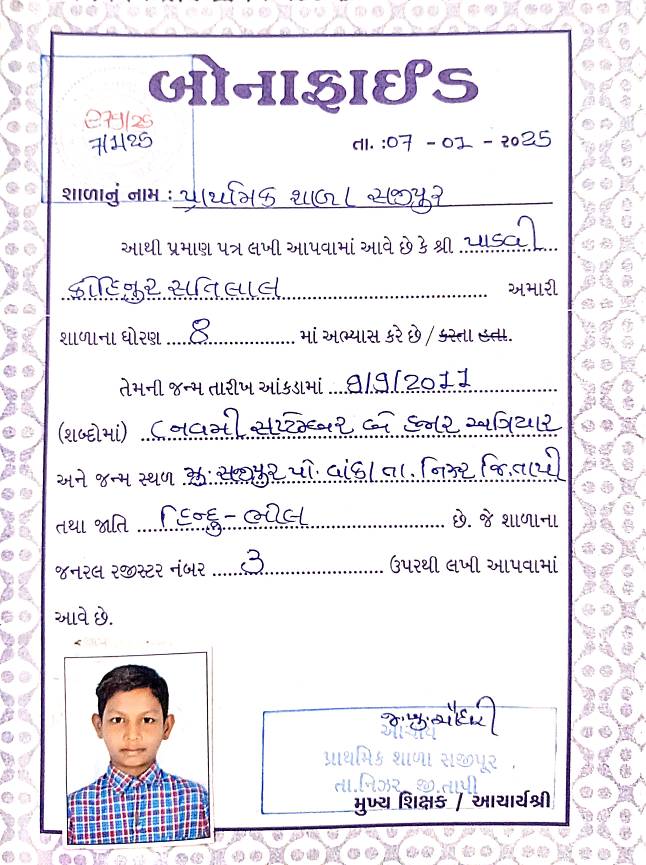 બોનાફાઈડ
7/1/25
તા. :07 - 01 - ૨૦25
શાળાનું નામ : પ્રાથમિક શાળા સજીપુર
આથી પ્રમાણ પત્ર લખી આપવામાં આવે છે કે શ્રી પાડવી
કોહિનુર સતિલાલ અમારી
શાળાના ધોરણ 8 માં અભ્યાસ કરે છે / કરતા હતા.
તેમની જન્મ તારીખ આંકડામાં 9/9/2011
(શબ્દોમાં) નવમી સપ્ટેમ્બર બે હજાર અગિયાર
અને જન્મ સ્થળ મુ. સજીપુર પો. વાંકા તા. નિઝર જિ. તાપી
તથા જાતિ હિન્દુ-ભીલ છે. જે શાળાના
જનરલ રજીસ્ટર નંબર 3 ઉપરથી લખી આપવામાં
આવે છે.
આચાર્ય
પ્રાથમિક શાળા સજીપૂર
તા.નિઝર જી.તાપી
મુખ્ય શિક્ષક / આચાર્યશ્રી